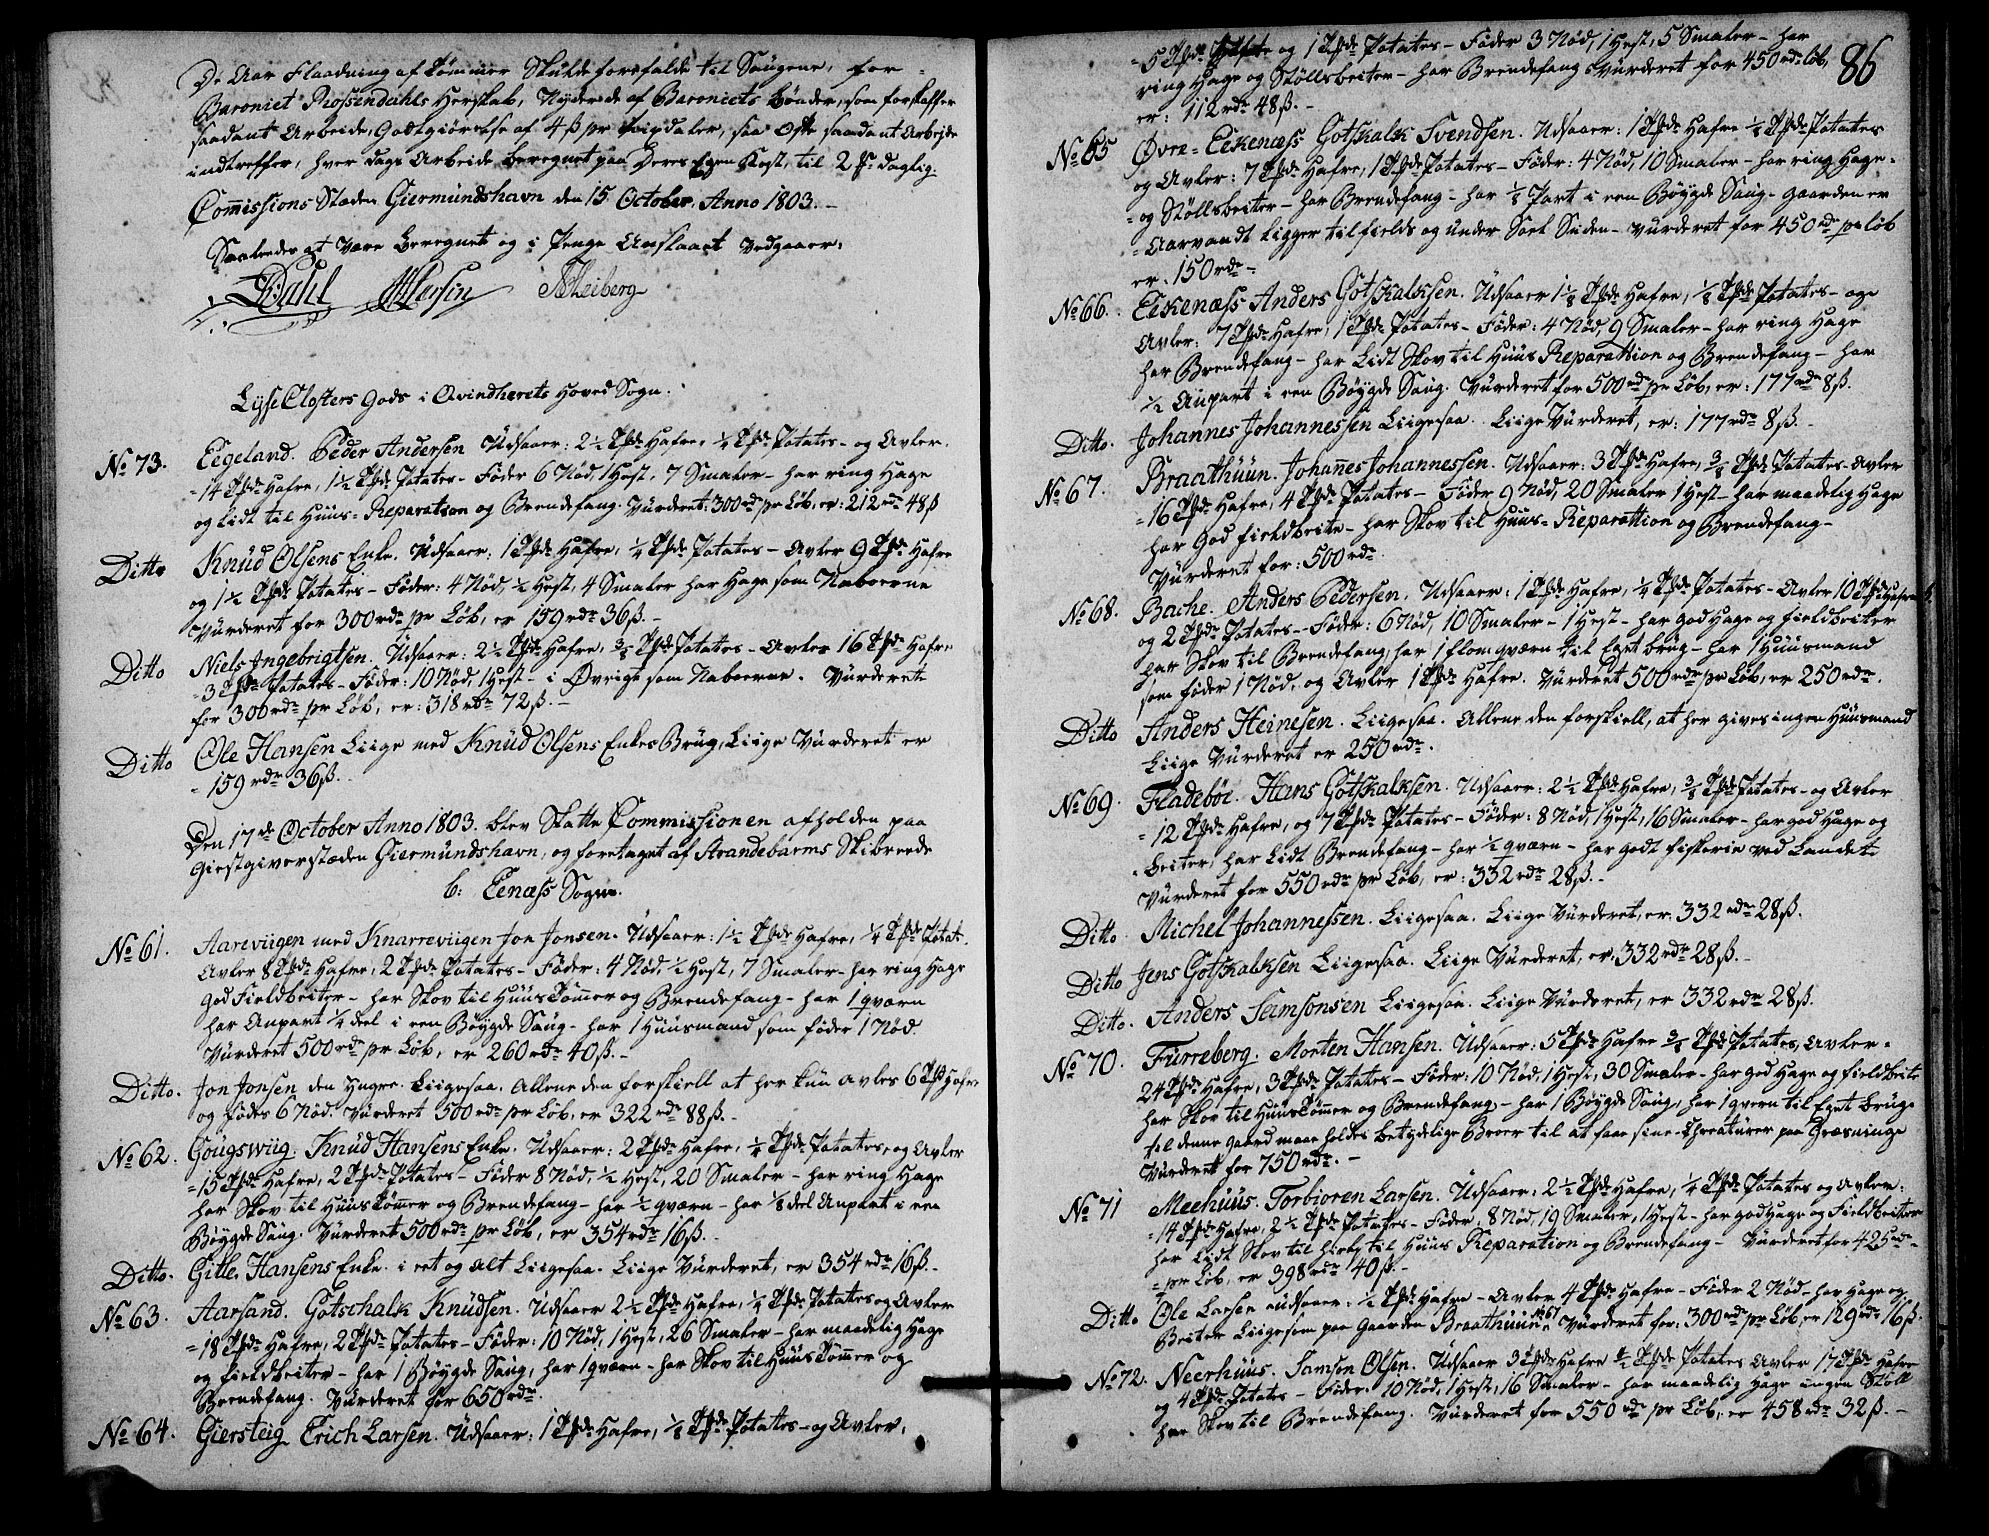 De Aar Flaadning af Tømmer Skulde forefalde til Saugene, for-
Baroniet Rossendahls Herskab, Nyder de af Baroniets Bønder, som forskaffer
saadant Arbeide, Godtgiørelse af 4 ß pr Tvigdaler, saa Ofte saadant Arbeide
indtreffer, hver dags Arbeide beregnet paa Deres Egen Kost, til 2 ß daglig.
Commissions Stæden Giermundshavn den 15 October Anno 1803.-
Saaledes at Være beregnet og i Penge Anslaaet Vedgaaer:
Dahl Meyer Heiberg
Lyse Closters Gods i Qvindherets Hoved Sogn.
No 73. Eegeland. Peder Andersen Udsaaer: 2½ Tøde Hafre, ¼ Tøde Potates- og Avler.
=14 Tøde Hafre, 1½ Tøde Potater- Føder 6 Nød, 1 Hest, 7 Smaler- har ring Hage
og Lidt til Huus= Reparation og Brendefang. Vurderet: 300 rdr pr Løb, er: 212 rdr 48 ß
Ditto Knud Olsens Enke. Udsaaer. 1 Tøde Hafre, ¼ Tøde Potates- Avler 9 Tøde Hafre
og 1½ Tøde Potates- Føder: 4 Nød, ½ Hest, 4 Smaler har Hage som Naboerne
Vurderet for 300 rdr pr Løb, er 159 rdr 36 ß.-
Ditto Niels Ingebrigtsen. Udsaaer: 2½ Tøde Hafre, ⅜ Tøde Potates- Avler 16 Tøde Hafre
=3 Tøde Potates- Føder: 10 Nød, 1 Hest- i Øvrigt som Naboerne. Vurderet
for 300 rdr pr Løb, er: 318 rdr 72 ß.-
Ditto Ole Hansen Liige med Knud Olsens Enkes Brug, Liige Vurderet er
=159 rdr 36 ß.
Den 17de October Anno 1803. blev Skatte Commissionen afholden paa
Giestgiverstæden Giermundshavn, og foretaget af Strandebarms Skibreede
b: Eenæss Sogn.
No 61. Aareviigen med Knarreviigen Jon Jonsen. Udsaaer: 1½ Tøde Hafre, ¼ Tøde Potat.
Avler 8 Tøde Hafre, 2 Tøde Potates- Føder: 4 Nød, ½ Hest, 7 Smaler- har ring Hage
god Fieldbeiter- har Skov til Huus Tømmer og Brendefang- har 1 qværn
har Anpart ¼ deel i een Bøygde Saug- har 1 Huusmand som føder 1 Nød
Vurderet 500 rdr pr Løb, er 260 rdr 40 ß.-
Ditto. Jon Jonsen den Yngre. Liigesaa. Allene den forskiell at her kun avles 6 Tøde Hafre
og fødes 6 Nød. Vurderet 500 rdr pr Løb, er 322 rdr 88 ß.-
No 62. Gougswiig. Knud Hansens Enke. Udsaaer: 2 Tøde Hafre, ¼ Tøde Potates, og Avler
=15 Tøde Hafre, 2 Tøde Potates- Føder 8 Nød, ½ Hest, 20 Smaler- har ring Hage
har Skov til Huus Tømmer og Brendefang- har ½ qværn- har ⅛ deel Anpart i een
Bøygde Saug. Vurderet 500 rdr pr Løb, er 354 rdr 16 ß.-
Ditto. Gitle Hansens Enke. i eet og Alt Liigesaa. Liige Vurderet, er 354 rdr 16 ß.-
No 63. Aarsand. Gotschalk Knudsen. Udsaaer 2½ Tøde Hafre, ¼ Tøde Potates og Avler
=18 Tøde Hafre, 2 Tøde Potates- Føder: 10 Nød, 1 Hest, 26 Smaler- har maadelig Hage
og Fieldbeiter- har 1 Bøygde Saug, har 1 qværn- har Skov til Huus Tømmer og
Brendefang. Vurderet for 650 rdr.
No 64. Giersteig Erich Larsen. Udsaaer: 1 Tøde Hafre, ⅛ Tøde Potates- og Avler.
86
5 Tøde Hafre og 1 Tøde Potates- Føder 3 Nød, 1 Hest, 5 Smaler- har
ring Hage og Støllsbeiter- har Brendefang Vurderet for 450 rdr Løb,
er: 112 rdr 48 ß.-
No 65 Øvre= Eekenæss Gotskalk Svendsen. Udsaaer: 1 Tøde Hafre ⅛ Tøde Potates
og Avler: 7 Tøde Hafre, 1 Tøde Potates- Føder: 4 Nød, 10 Smaler- har ring Hage=
= og Støllsbeiter- har Brendefang- har ⅛ Part i een Bøygde Saug- Gaarden er
=Aarvandt Ligger tilfields og under Soel Siden- Vurderet for 450 rdr pr Løb
er: 150 rdr-
No 66. Eekenæss Anders Gotskalksen. Udsaaer 1⅛ Tøde Hafre, ⅛ Tøde Potates- og
Avler: 7 Tøde Hafre, 1 Tøde Potates- Føder: 4 Nød, 9 Smaler- har ring Hage
har Brendefang- har Lidt Skov til Huus Reparattion og Brendefang- har
½ Anpart i een Bøygde Saug. Vurderet for 500 rdr pr Løb, er: 177 rdr 8 ß.
Ditto. Johannes Johannessen Liigesaa. Liige Vurderet, er: 177 rdr 8 ß.-
No 67. Braathuun. Johannes Johannessen. Udsaaer: 3 Tøde Hafre, ⅜ Tøde Potates- Avler
=16 Tøde Hafre, 4 Tøde Potates- Føder 9 Nød, 20 Smaler 1 Hest- har maadelig Hage
har God Fieldbeite- har Skov til Huus= Reparattion og Brendefang-
Vurderet for: 500 rdr.
No 68. Bache. Anders Pedersen. Udsaaer: 1 Tøde Hafre, ¼ Tøde Potates- Avler 10 Tøde Hafre
og 2 Tøde Potates- Føder: 6 Nød, 10 Smaler- 1 Hest- har god Hage og fieldbeiter
har Skov til Brendefang, har 1 flomqværn til Eget brug- har 1 Huusmand
som føder 1 Nød, og Avler 1 Tøde Hafre. Vurderet 500 rdr pr Løb, er 250 rdr.
Ditto Anders Heinesen. Liigesaa. Allene den forskiell, at her gives ingen Huusmand
Liige Vurderet er 250 rdr.
No 69. Fladebøe. Hans Gotskalksen. Udsaaer: 2½ Tøde Hafre, ⅜ Tøde Potates- og Avler
=12 Tøde Hafre, og 7 Tøde Potates- Føder: 8 Nød, 1 Hest, 16 Smaler- har god Hage og
Beiter, har Lidt Brendefang- har ½ qværn- har godt fiskerie ved Landet
Vurderet for 550 rdr pr Løb, er: 332 rdr 28 ß.-
Ditto. Michel Johannessen. Liigesaa. Liige Vurderet, er: 332 rdr 28 ß.
Ditto Jens Gotskalksen Liigesaa. Liige Vurderet, er: 332 rdr 28 ß.-
Ditto. Anders Samsonsen Liigesaa. Liige Vurderet, er 332 rdr 28 ß.
No 70. Furreberg. Morten Hansen. Udsaaer: 5 Tøde Hafre ⅜ Tøde Potates, Avler=
24 Tøde Hafre, 3 Tøde Potates- Føder: 10 Nød, 1 Hest, 30 Smaler- har god Hage og fieldbeite
har Skov til Huus Tømmer og Brendefang- har 1 Bøygde Saug, har 1 qvern til Eget brug-
til denne Gaard maae holdes betydelige Broer til at faae sine Chreaturer paa Græsninge
Vurderet for 750 rdr.-
No 71 Meehuus. Torbioren Larsen. Udsaaer: 2½ Tøde Hafre, ¼ Tøde Potates og Avler:
=14 Tøde Hafre, 2½ Tøde Potates- Føder: 8 Nød, 19 Smaler, 1 Hest- har god Hage og Fieldbeiter
har Lidt Skov til hielp til Huus Reparation og Brendefang- Vurderet for 425 rdr-
=pr Løb, er 398 rdr 40 ß.-
Ditto Ole Larsen udsaaer: ½ Tøde Hafre- Avler 4 Tøde Hafre- Føder 2 Nød- har Hage og
Beiter Liigesom paa Gaarden Braathuun No 67. Vurderet for: 300 rdr pr Løb, er 129 rdr 16 ß.
No 72. Neerhuus. Samson Olsen. Udsaaer 3 Tøde Hafre ½ Tøde Potates Avler 17 Tøde Hafre
og 4 Tøde Potates- Føder: 10 Nød, 1 Hest, 16 Smaler- har maadelig Hage ingen Støll
har Skov til Brendefang. Vurderet for 550 rdr pr Løb, er 458 rdr 32 ß.-